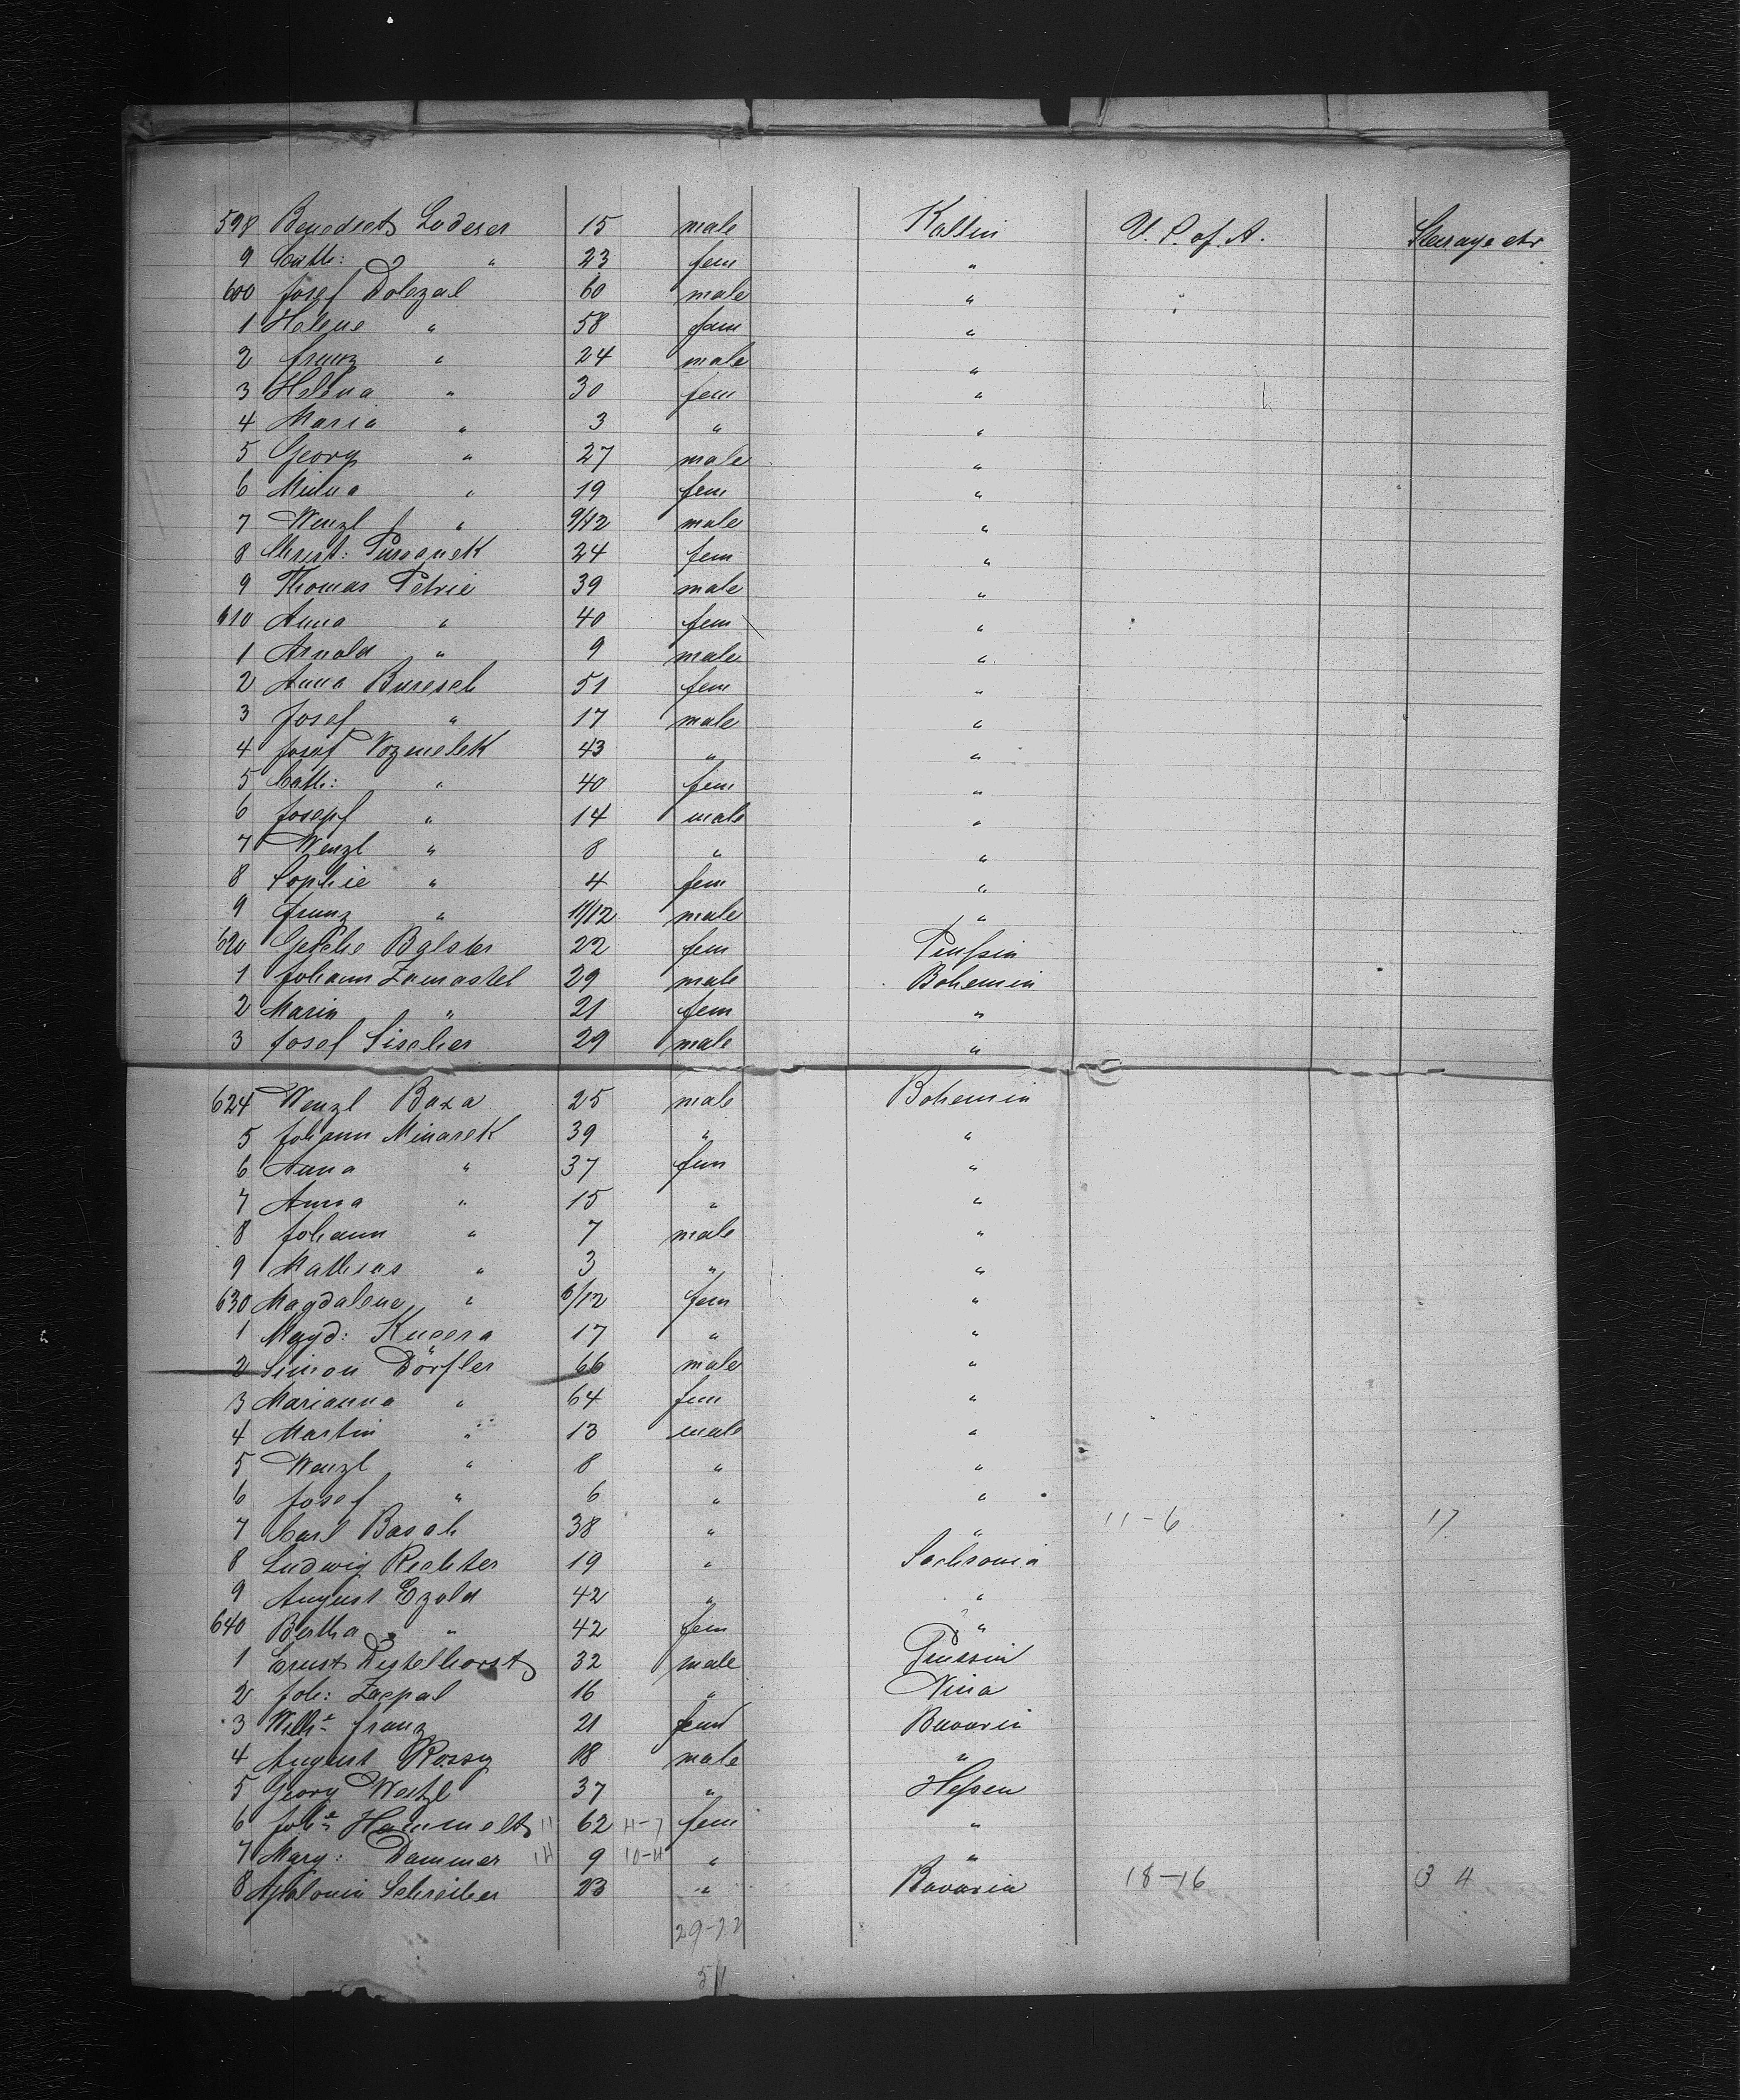 598 Benedict Loderer 15 male Kollin U. S. of. A. Steerage etc
9 Cath: " 23 fem "
600 Josef Dolezal 60 male "
1 Helene " 58 fem "
2 Franz " 24 male "
3 Helena " 30 fem "
4 Maria " 3 " "
5 Georg " 27 male "
6 Minna " 19 fem "
7 Wenzl " 9/12 male "
8 Christ: 24 fem "
9 Thomas Petrie 39 male "
610 Anna " 40 fem "
1 Arnold " 9 male "
2 Anna Buresch 51 fem "
3 Josef " 17 male "
4 Josef Vozmelek 43 " "
5 Cath: " 40 fem "
6 Josepf " 14 male "
7 Wenzl " 8 " "
8 Sophie " 4 fem "
9 Franz " 11/12 male "
620 Gesche Balster 22 fem Prussia
1 Johann Zamastel 29 male Bohemia
2 Maria " 21 fem "
3 Josef Sischer 29 male "
624 Wenzl Baza 25 male Bohemia
5 Johann Minarek 39 " "
6 Anna " 37 fem "
7 Anna " 15 " "
8 Johann " 7 male "
9 Mathias " 3 " "
630 Magdalena " 6/12 fem "
1 Magd: Kucera 17 " "
2 Simon Dörfler 66 male "
3 Marianna " 64 fem "
4 Martin " 13 male "
5 Wenzl " 8 " "
6 Josef " 6 " "
7 Carl Basch 38 " " 11-6 17
8 Ludwig Richter 19 " Sachsonia
9 August Ezold 42 " "
640 Bertha " 42 fem "
1 Ernst Distelhorst 32 male Prussia
2 Joh: Zacpal 16 "
3 Wilh= Franz 21 fem Bavaria
4 August Rossy 18 male "
5 Georg Weitzl 37 " Hessen
6 Joh= Hammelt 11 62 11-7 fem "
7 Marg: Dammer 14 9 10-11 " "
8 Apolonia Schreiber 23 " Bavaria 18-16 3 4
29-22
51